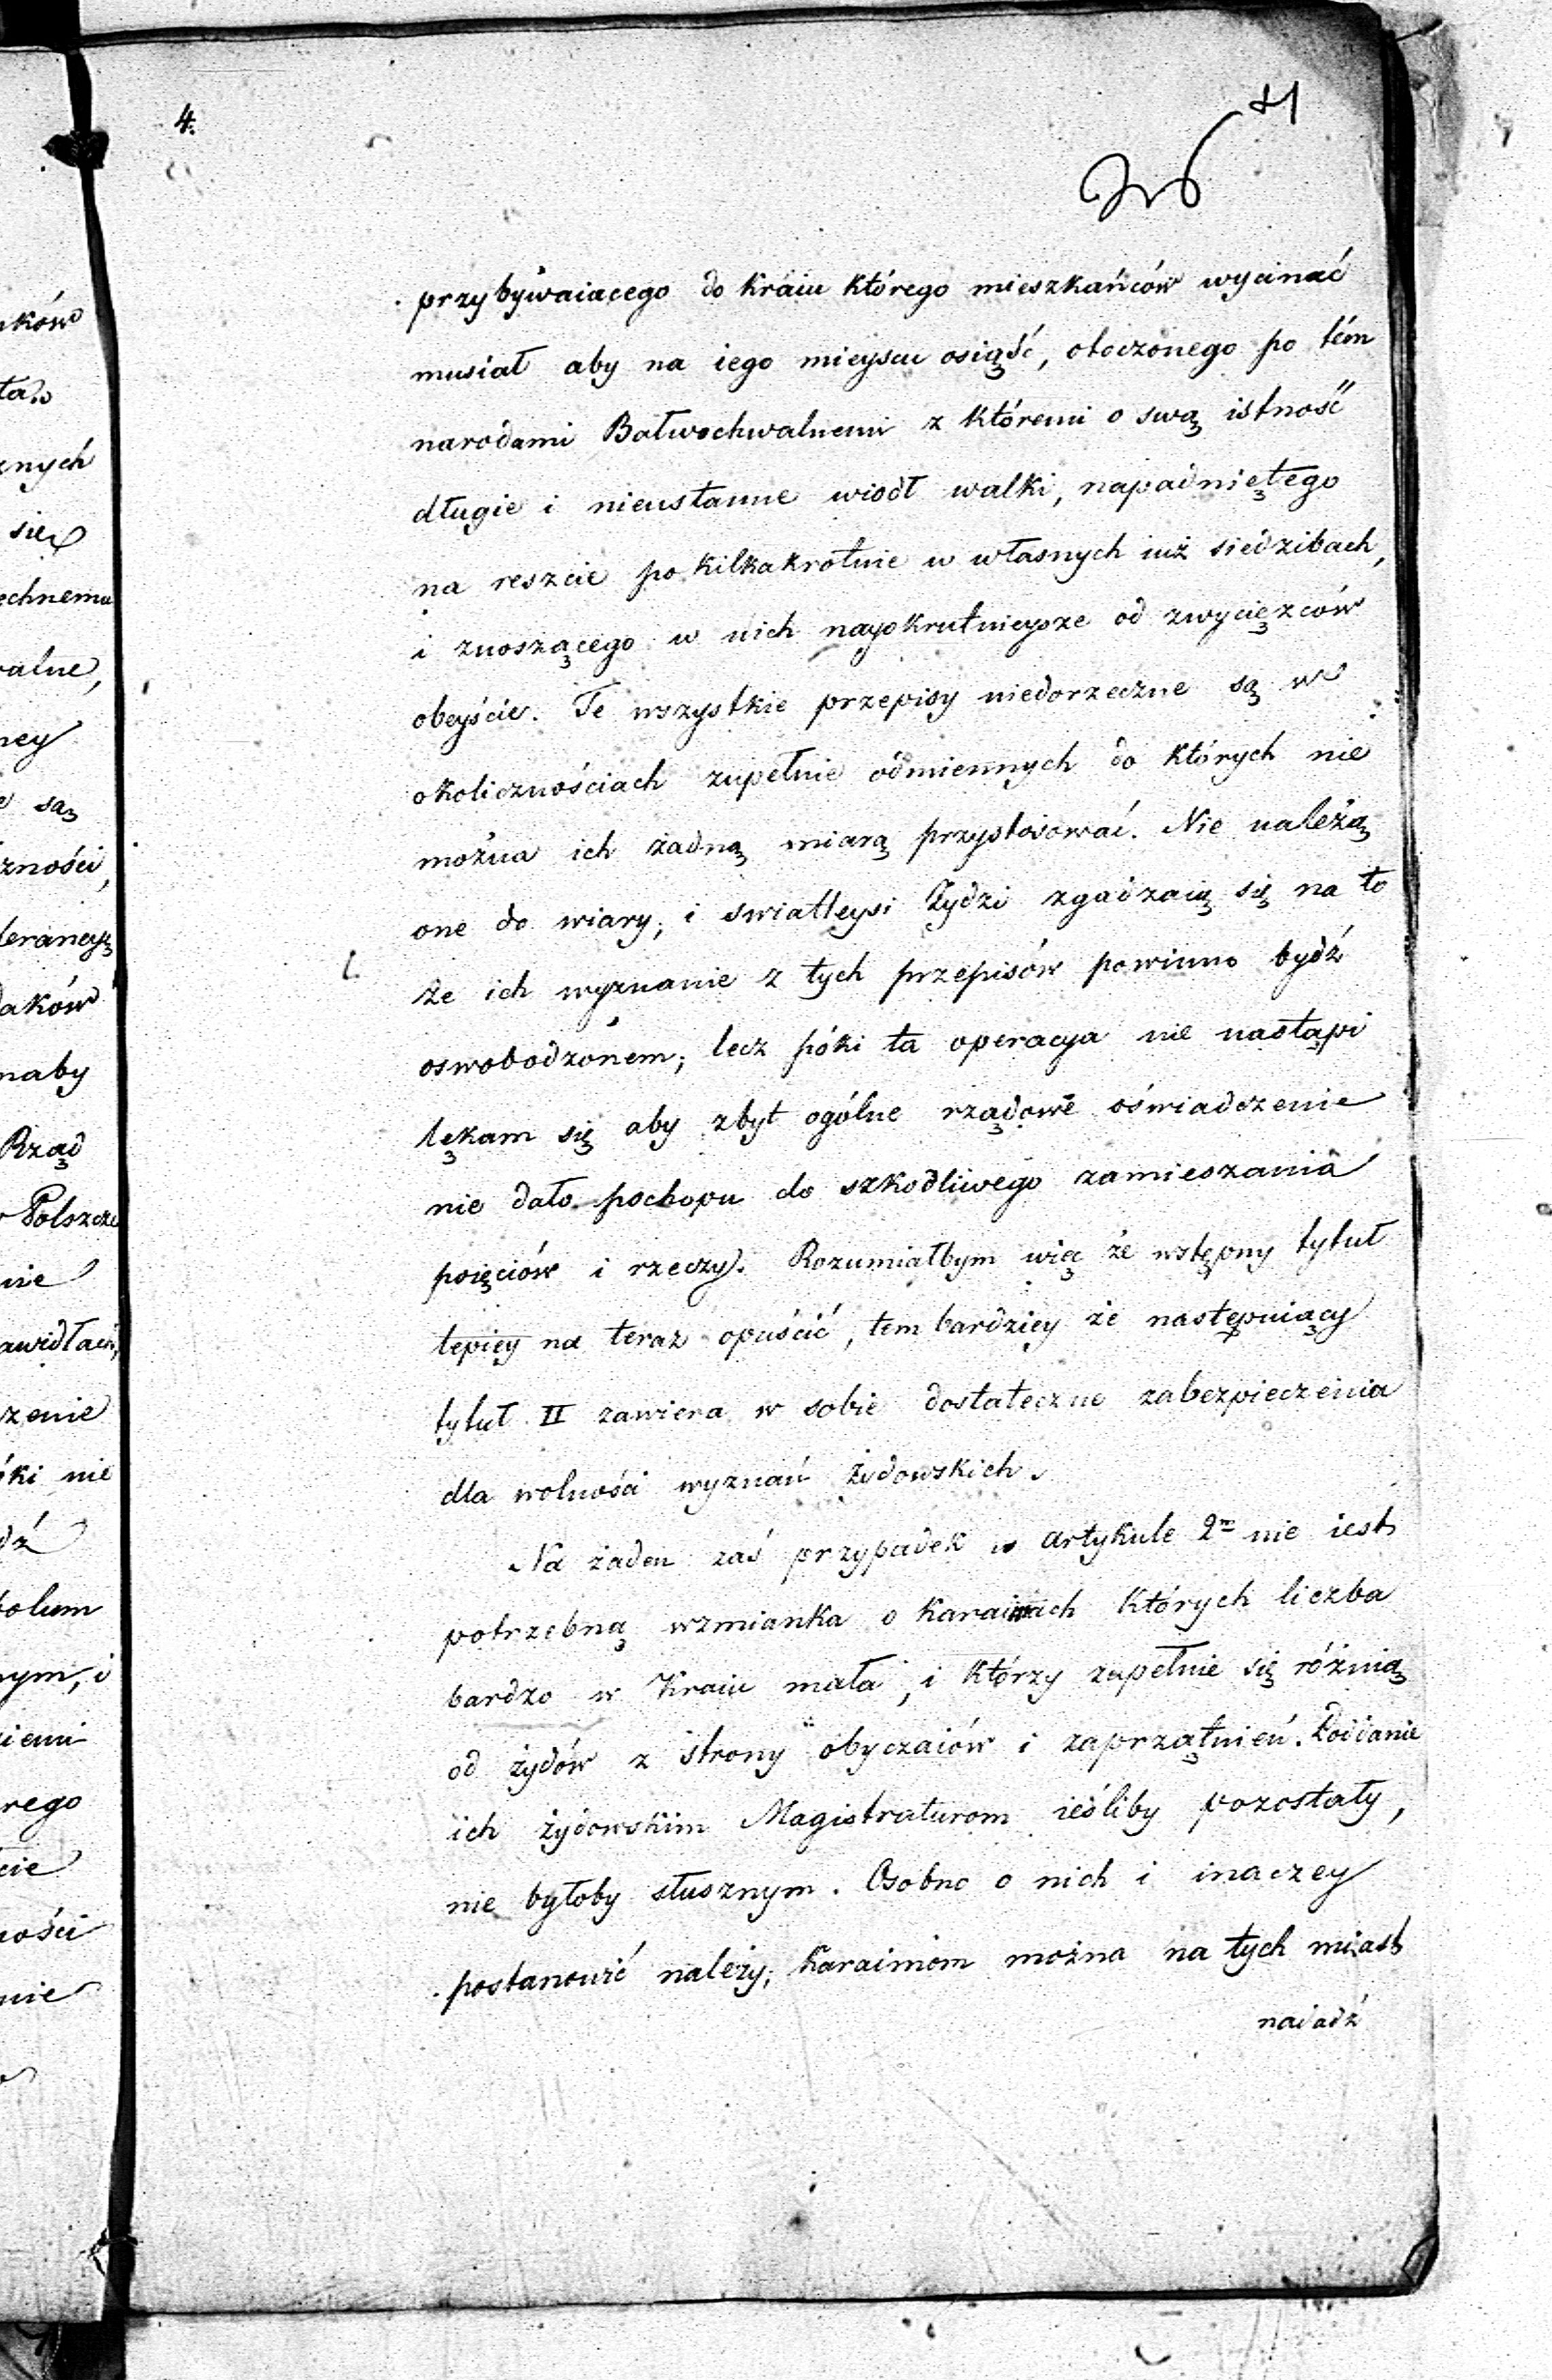 4.
przybywaiącego do kraiu którego mieszkańców wycinać
musiał aby na iego mieyscu osiąść, otoczonego po tém
narodami Bałwochwalnemi z któremi o swą istność
długie i nieustanne wiódł walki, napadniętego
na reszcie po kilkakrotnie w własnych iuż siedzibach,
i znoszącego w nich nayokrutnieysze od zwyciężców
obeyście. Te wszystkie przepisy niedorzeczne są w
okolicznościach zupełnie odmiennych do których nie
można ich żadną miarą przystosować. Nie należą
one do wiary, i swiatleysi Żydzi zgadzaią się na to
że ich wyznanie z tych przepisów powinno bydź
oswobodzoném; lecz póki ta operacya nie nastąpi
lękam się aby zbyt ogólne rządowe oświadczenie
nie dało pochopu do szkodliwego zamieszania
poięciów i rzeczy. Rozumiałbym więc że wstępny tytuł
lepiey na teraz opuścić, tem bardziey że następuiący
tytuł II zawiera w sobie dostateczne zabezpieczenia
dla wolności wyznań żydowskich.
Na żaden zaś przypadek w artykule 2m nie iest
potrzebną wzmianka o karaimach których liczba
bardzo w Kraiu mała, i którzy zupełnie się różnią
od żydów z strony obyczaiów i zaprzątnień. Poddanie
ich żydowskim Magistraturom ieśliby pozostały,
nie byłoby słusznym. Osobno o nich i inaczey
postanowić należy; Karaimom można na tych miast
nadadź
nków
znych
się
echnemu
alne,
ney
są
zności,
lerancyą
daków
naby
Rząd
Polszcze
nie
awidłach,
zenie
óki nie
dź
bolum
nym, i
ziemi
rego
cie
ności
nie